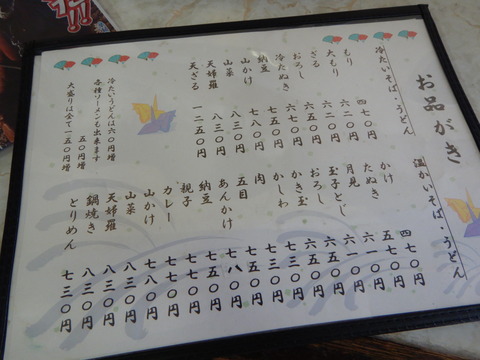 お品がき
冷たいそば・うどん
もり 四七〇円
大もり 六二〇円
ざる 五二〇円
おろし 六五〇円
冷たぬき 六七〇円
納豆 七五〇円
山かけ 七八〇円
山菜 八三〇円
天婦羅 八三〇円
天ざる 一二五〇円
冷たいうどんは六〇円増
各種ラーメンも出来ます
五〇円増
大盛りは全て一五〇円増
温かいそば・うどん
かけ 四七〇円
たぬき 五七〇円
月見 六一〇円
玉子とじ 六一〇円
おろし 六五〇円
かき玉 六五〇円
かしわ 七三〇円
肉 七三〇円
五目 七五〇円
あんかけ 七八〇円
納豆 七五〇円
親子 七七〇円
カレー 七七〇円
山かけ 七八〇円
山菜 八三〇円
天婦羅 八三〇円
鍋焼き 八三〇円
とりめん 七三〇円